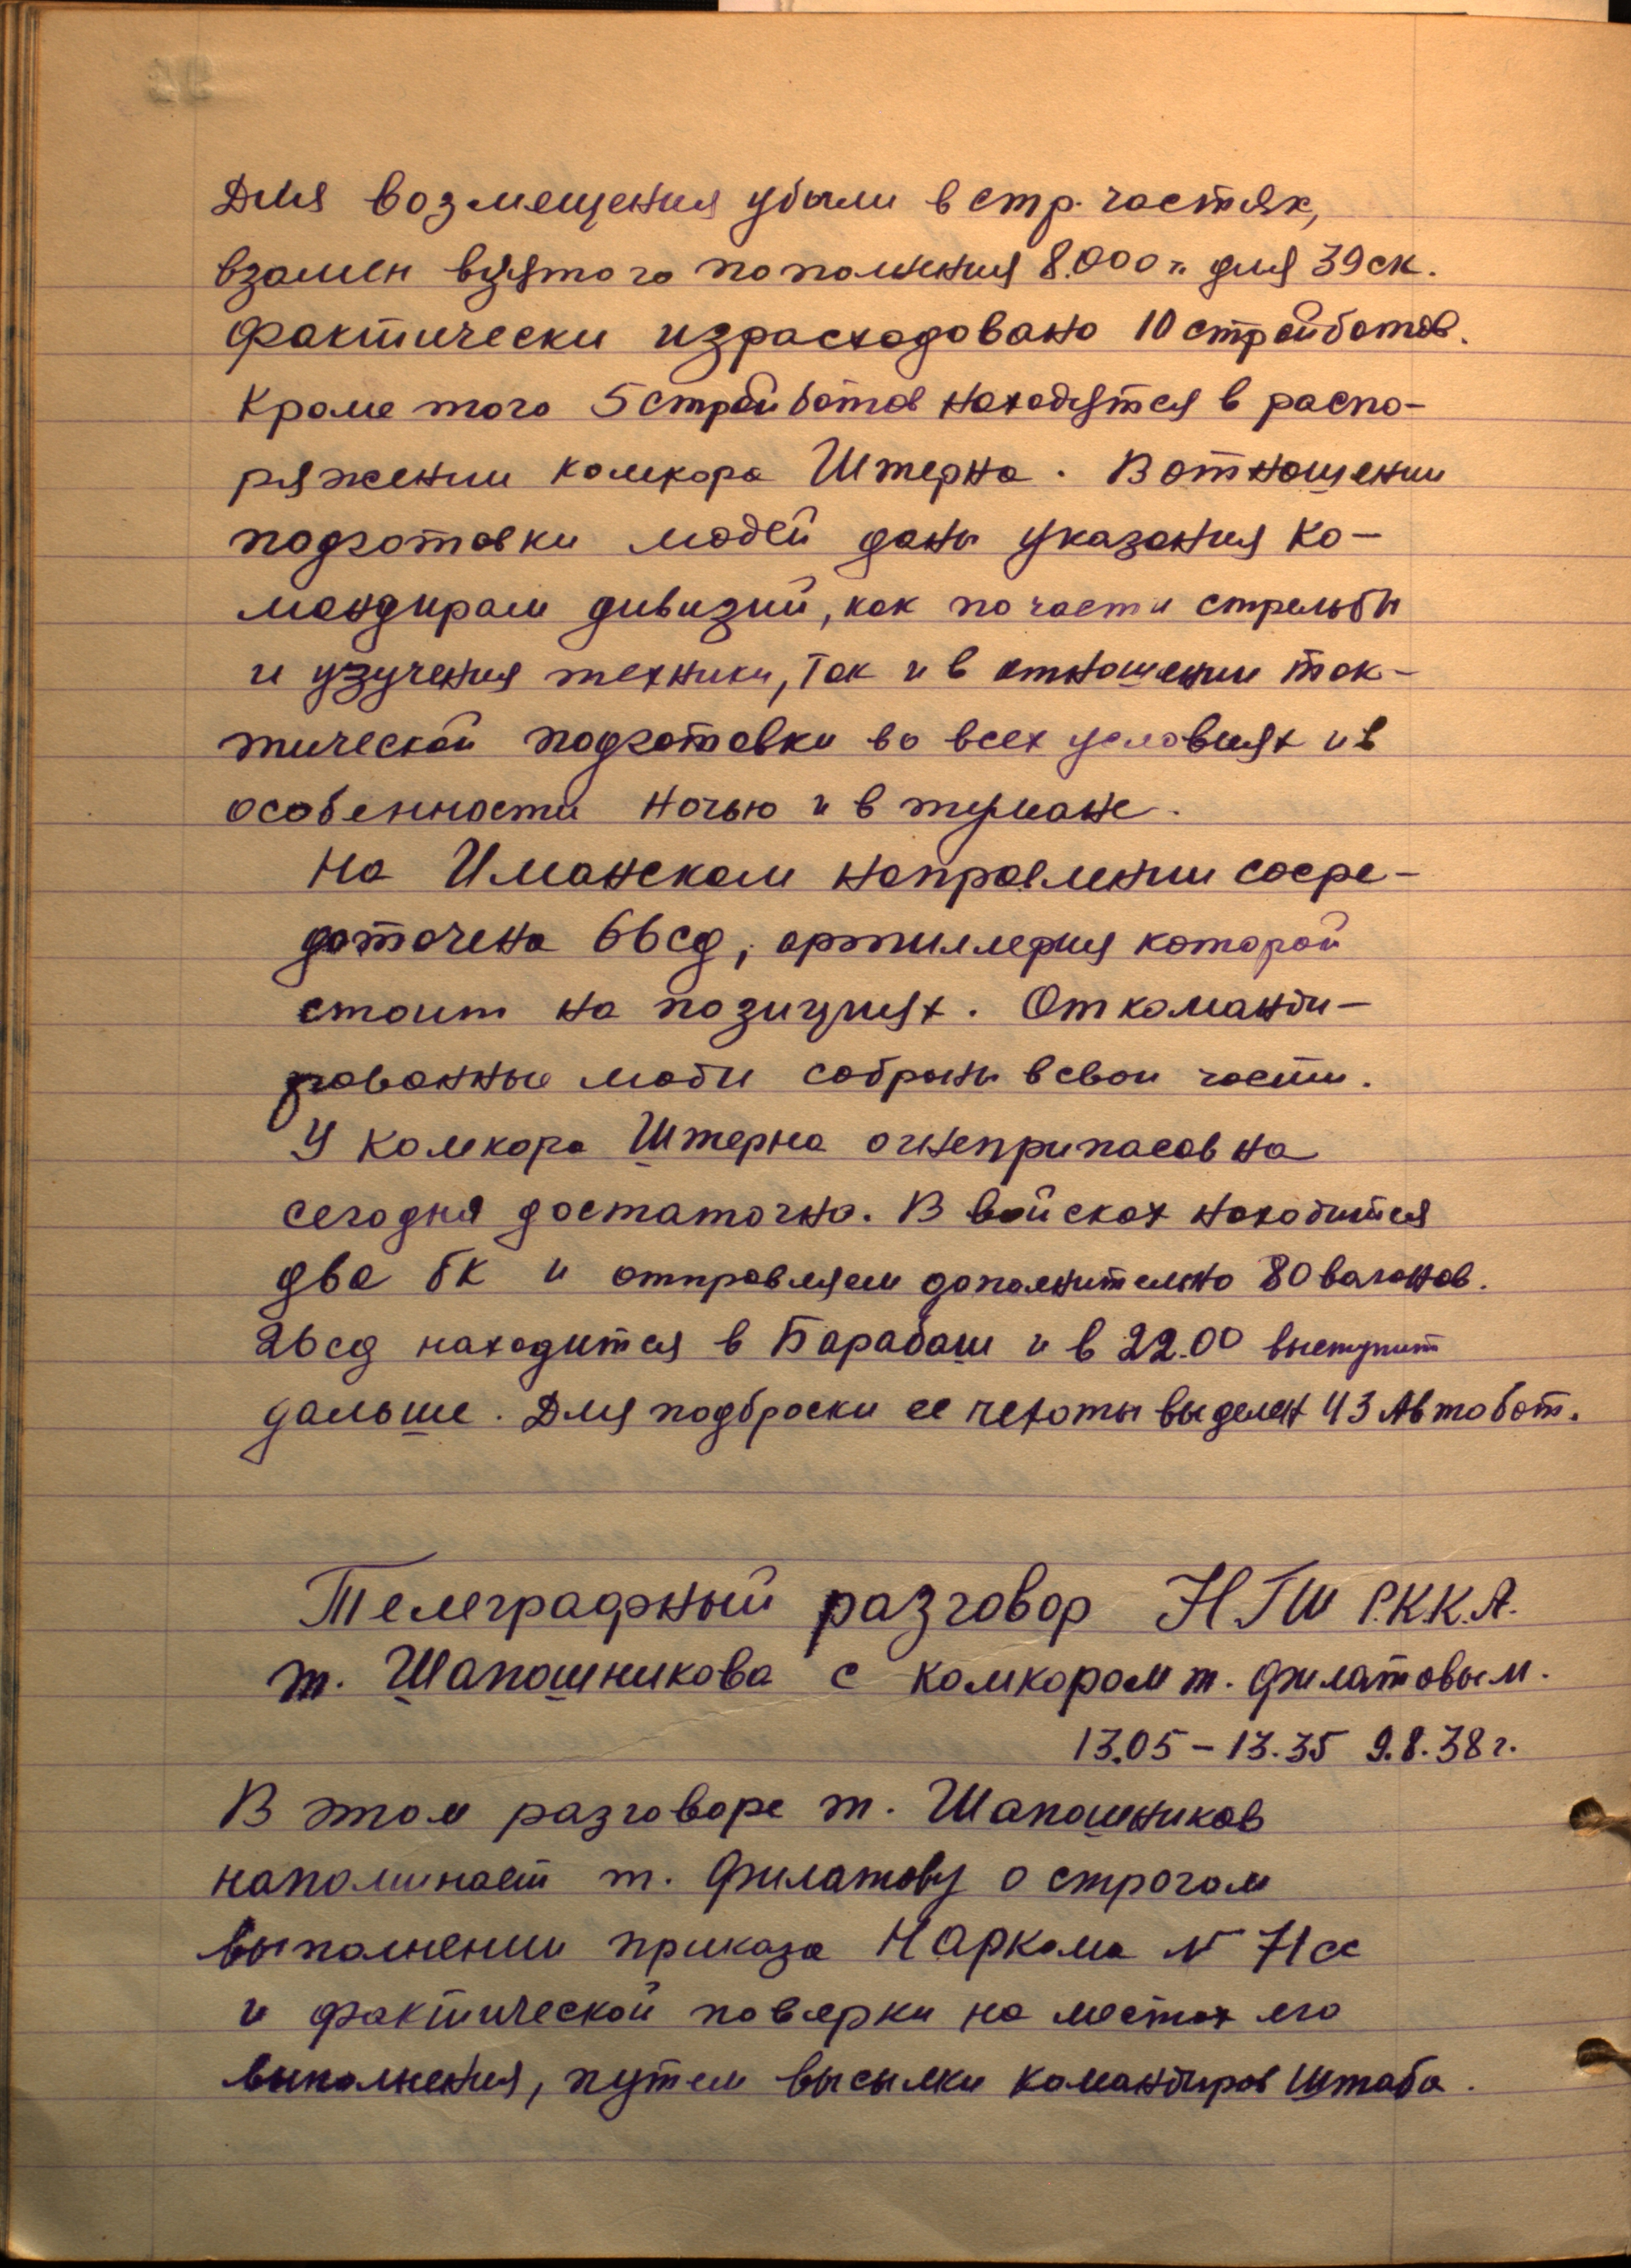 Для возмещения убыли в стр. частях,
взамен взятого пополнения 8.000 ч. для 39 ск.
фактически израсходовано 10 стройбатов.
Кроме того 5 стройбатов находятся в распо-
ряжении комкора Штерна. В отношении
подготовки людей даны указания ко-
мандирам дивизий, как по части стрельбы
и изучения техники, так и в отношении так-
тической подготовки во всех условиях и в
особенности ночью и в тумане.
На Иманском направлении сосре-
доточена 66 сд, артиллерия которой
стоит на позициях. Откоманди-
рованные люди собраны в свои части.
У комкора Штерна огнеприпасов на
сегодня достаточно. В войсках находится
два бк и отправляем дополнительно 80 вагонов.
26 сд находится в Барабаш и в 22.00 выступит
дальше. Для подброски ее пехоты выделен 43 Автобат.
Телеграфный разговор НГШ Р.К.К.А.
т. Шапошникова с комкором т. Филатовым.
13.05 - 13.35 9.8.38 г.
В этом разговоре т. Шапошников
напоминает т. Филатову о строгом
выполнении приказа Наркома № 71сс
и фактической поверки на местах его
выполнения, путем высылки командиров штаба.